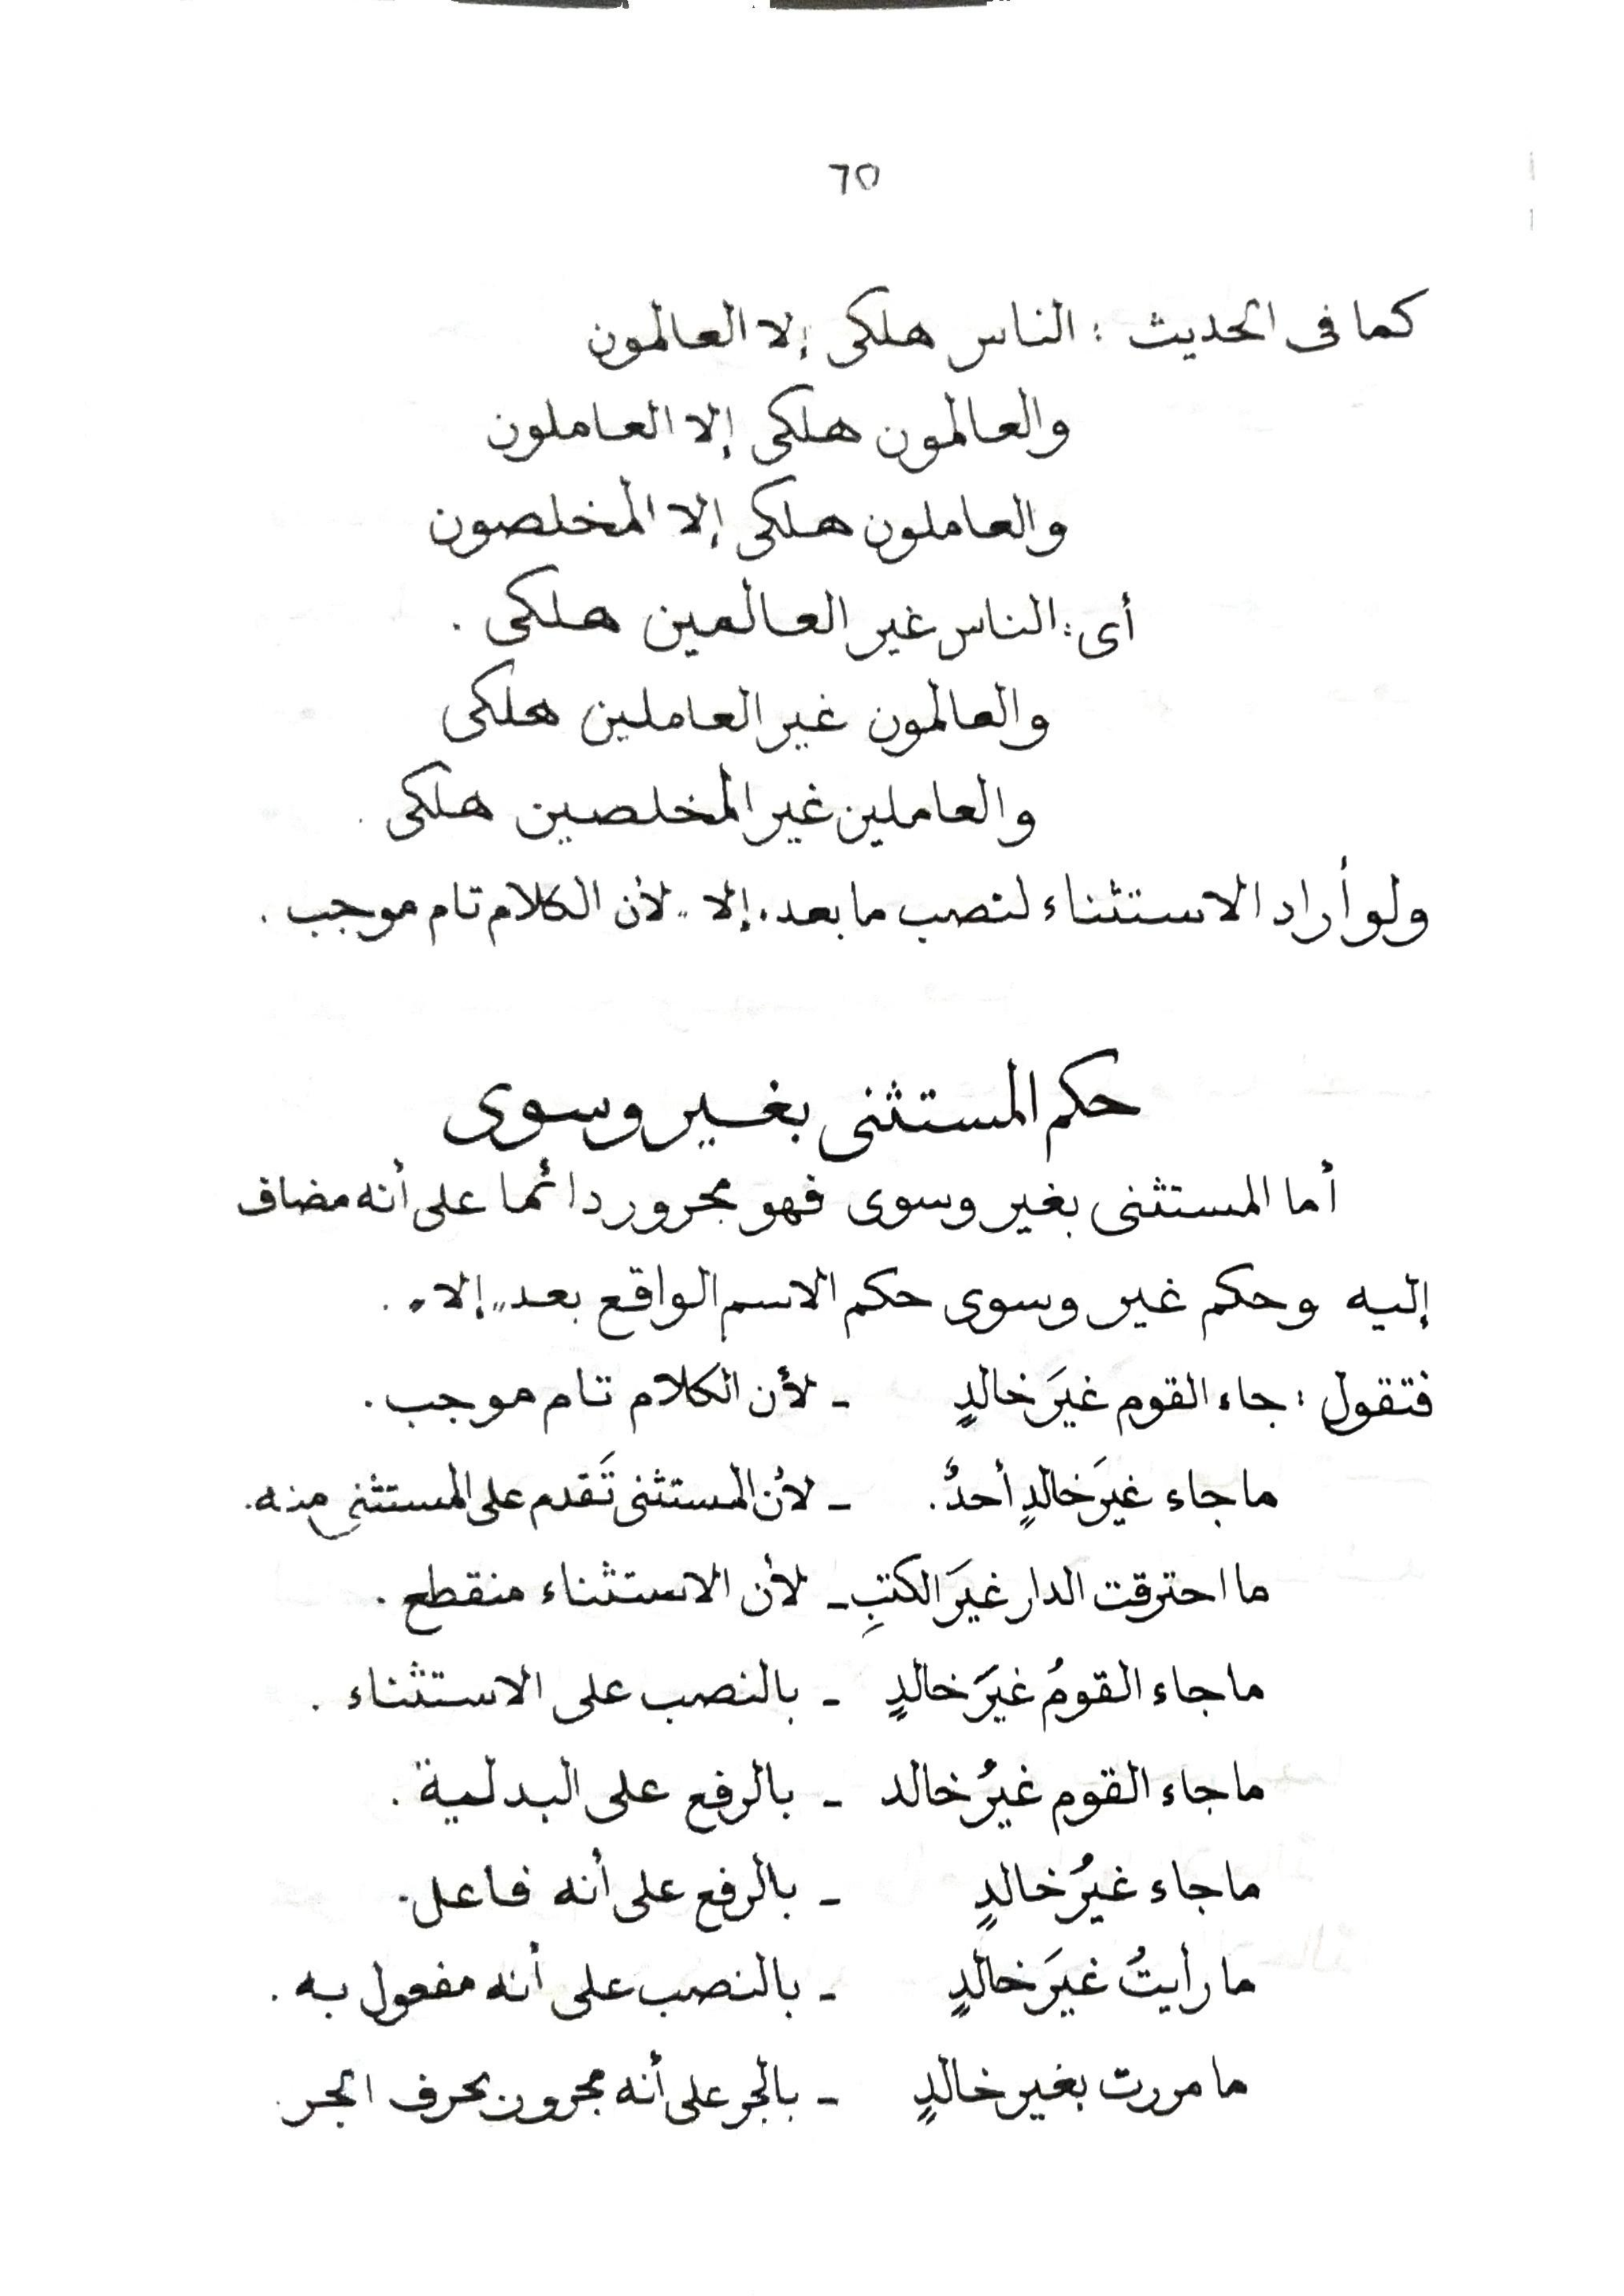 ٦٥
كما فى الحديث : الناس هلكى إلا العالمون
والعالمون هلكى إلا العاملون
والعاملون هلكى إلا المخلصون
أى : الناس غير العالمين هلكى .
والعالمون غير العاملين هلكى
والعاملين غير المخلصين هلكى .
ولو أراد الاستثناء لنصب ما بعد "إلا" لأن الكلام تام موجب .
حكم المستثنى بغير وسوى
أما المستثنى بغير وسوى فهو مجرور دائما على أنه مضاف
إليه وحكم غير وسوى حكم الاسم الواقع بعد "إلا" .
فتقول : جاء القوم غيرَ خالدٍ - لأن الكلام تام موجب .
ما جاء غيرَ خالدٍ أحدٌ . - لأن المستثنى تَقدم على المستثنى منه .
ما احترقت الدار غيرَ الكتبِ - لأن الاستثناء منقطع .
ما جاء القومُ غيرَ خالدٍ - بالنصب على الاستثناء .
ما جاء القوم غيرُ خالد - بالرفع على البدلية .
ما جاء غيرُ خالدٍ - بالرفع على أنه فاعل .
ما رأيتُ غيرَ خالدٍ - بالنصب على أنه مفعول به .
ما مررت بغير خالدٍ - بالجر على أنه مجرور بحرف الجر .